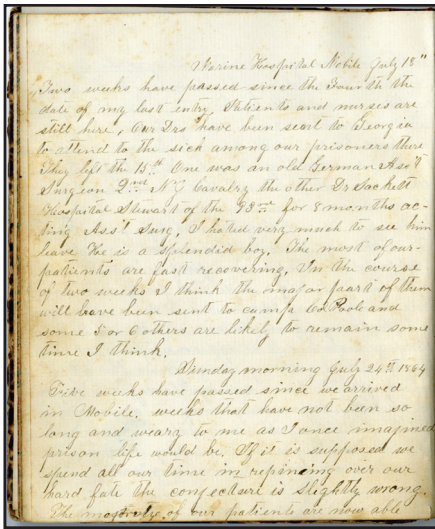 Marine Hospital Mobile July 18"
Two weeks have passed since the Fourth the
date of my last entry Patients and nurses are
still here, Our Drs have been sent to Georgia
to attend to the sick among our prisoners there
They left the 15th One was an old German Ass't
Surgeon 2nd N.J. Cavalry the other Dr Sackett
Hospital Stewart of the for 8 months ac-
ting Ass't Surg. I hated very much to see him
leave He is a splendid boy. The most of our
patients are fast recovering. In the course
of two weeks I think the major part of them
will have been sent to camp Co Poole and
some 5 or 6 others are likely to remain some
time I think.
Sunday morning July 24th 1864
Five weeks have passed since we arrived
in Mobile. weeks that have not been so
long and weary to me as I once imagined
prison life would be. If it is supposed we
spend all our time in repining over our
hard fate the conjecture is slightly wrong.
The majority of our patients are now able